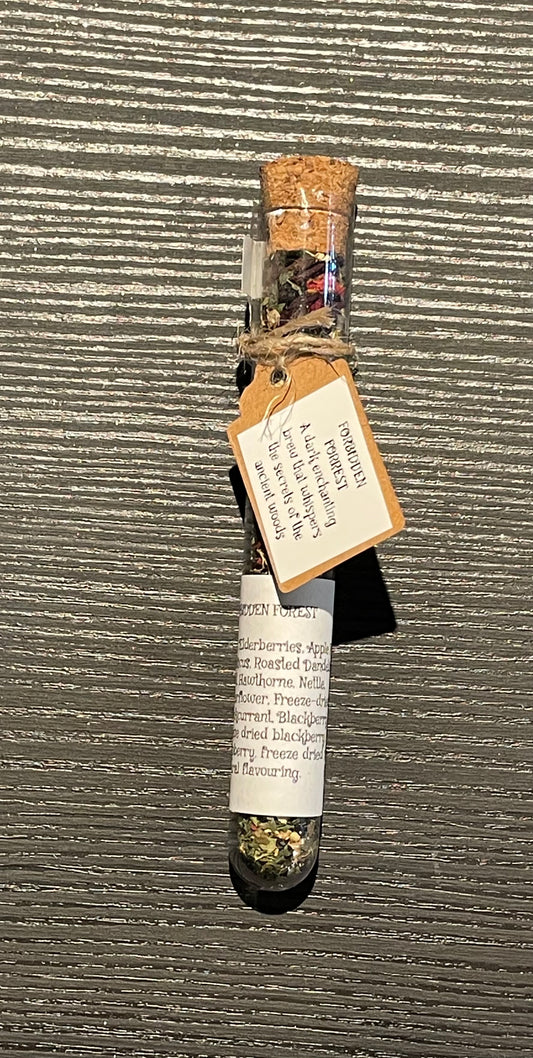 FORBIDDEN
FORREST
A dark, enchanting
brew that whispers
the secrets of the
ancient woods
DDEN FOREST
Elderberries, Apple
cus, Roasted Dande
Hawthorne, Nettle,
flower, Freeze-drie
currant, Blackberr
e dried blackberry
berry, freeze dried
al flavouring.